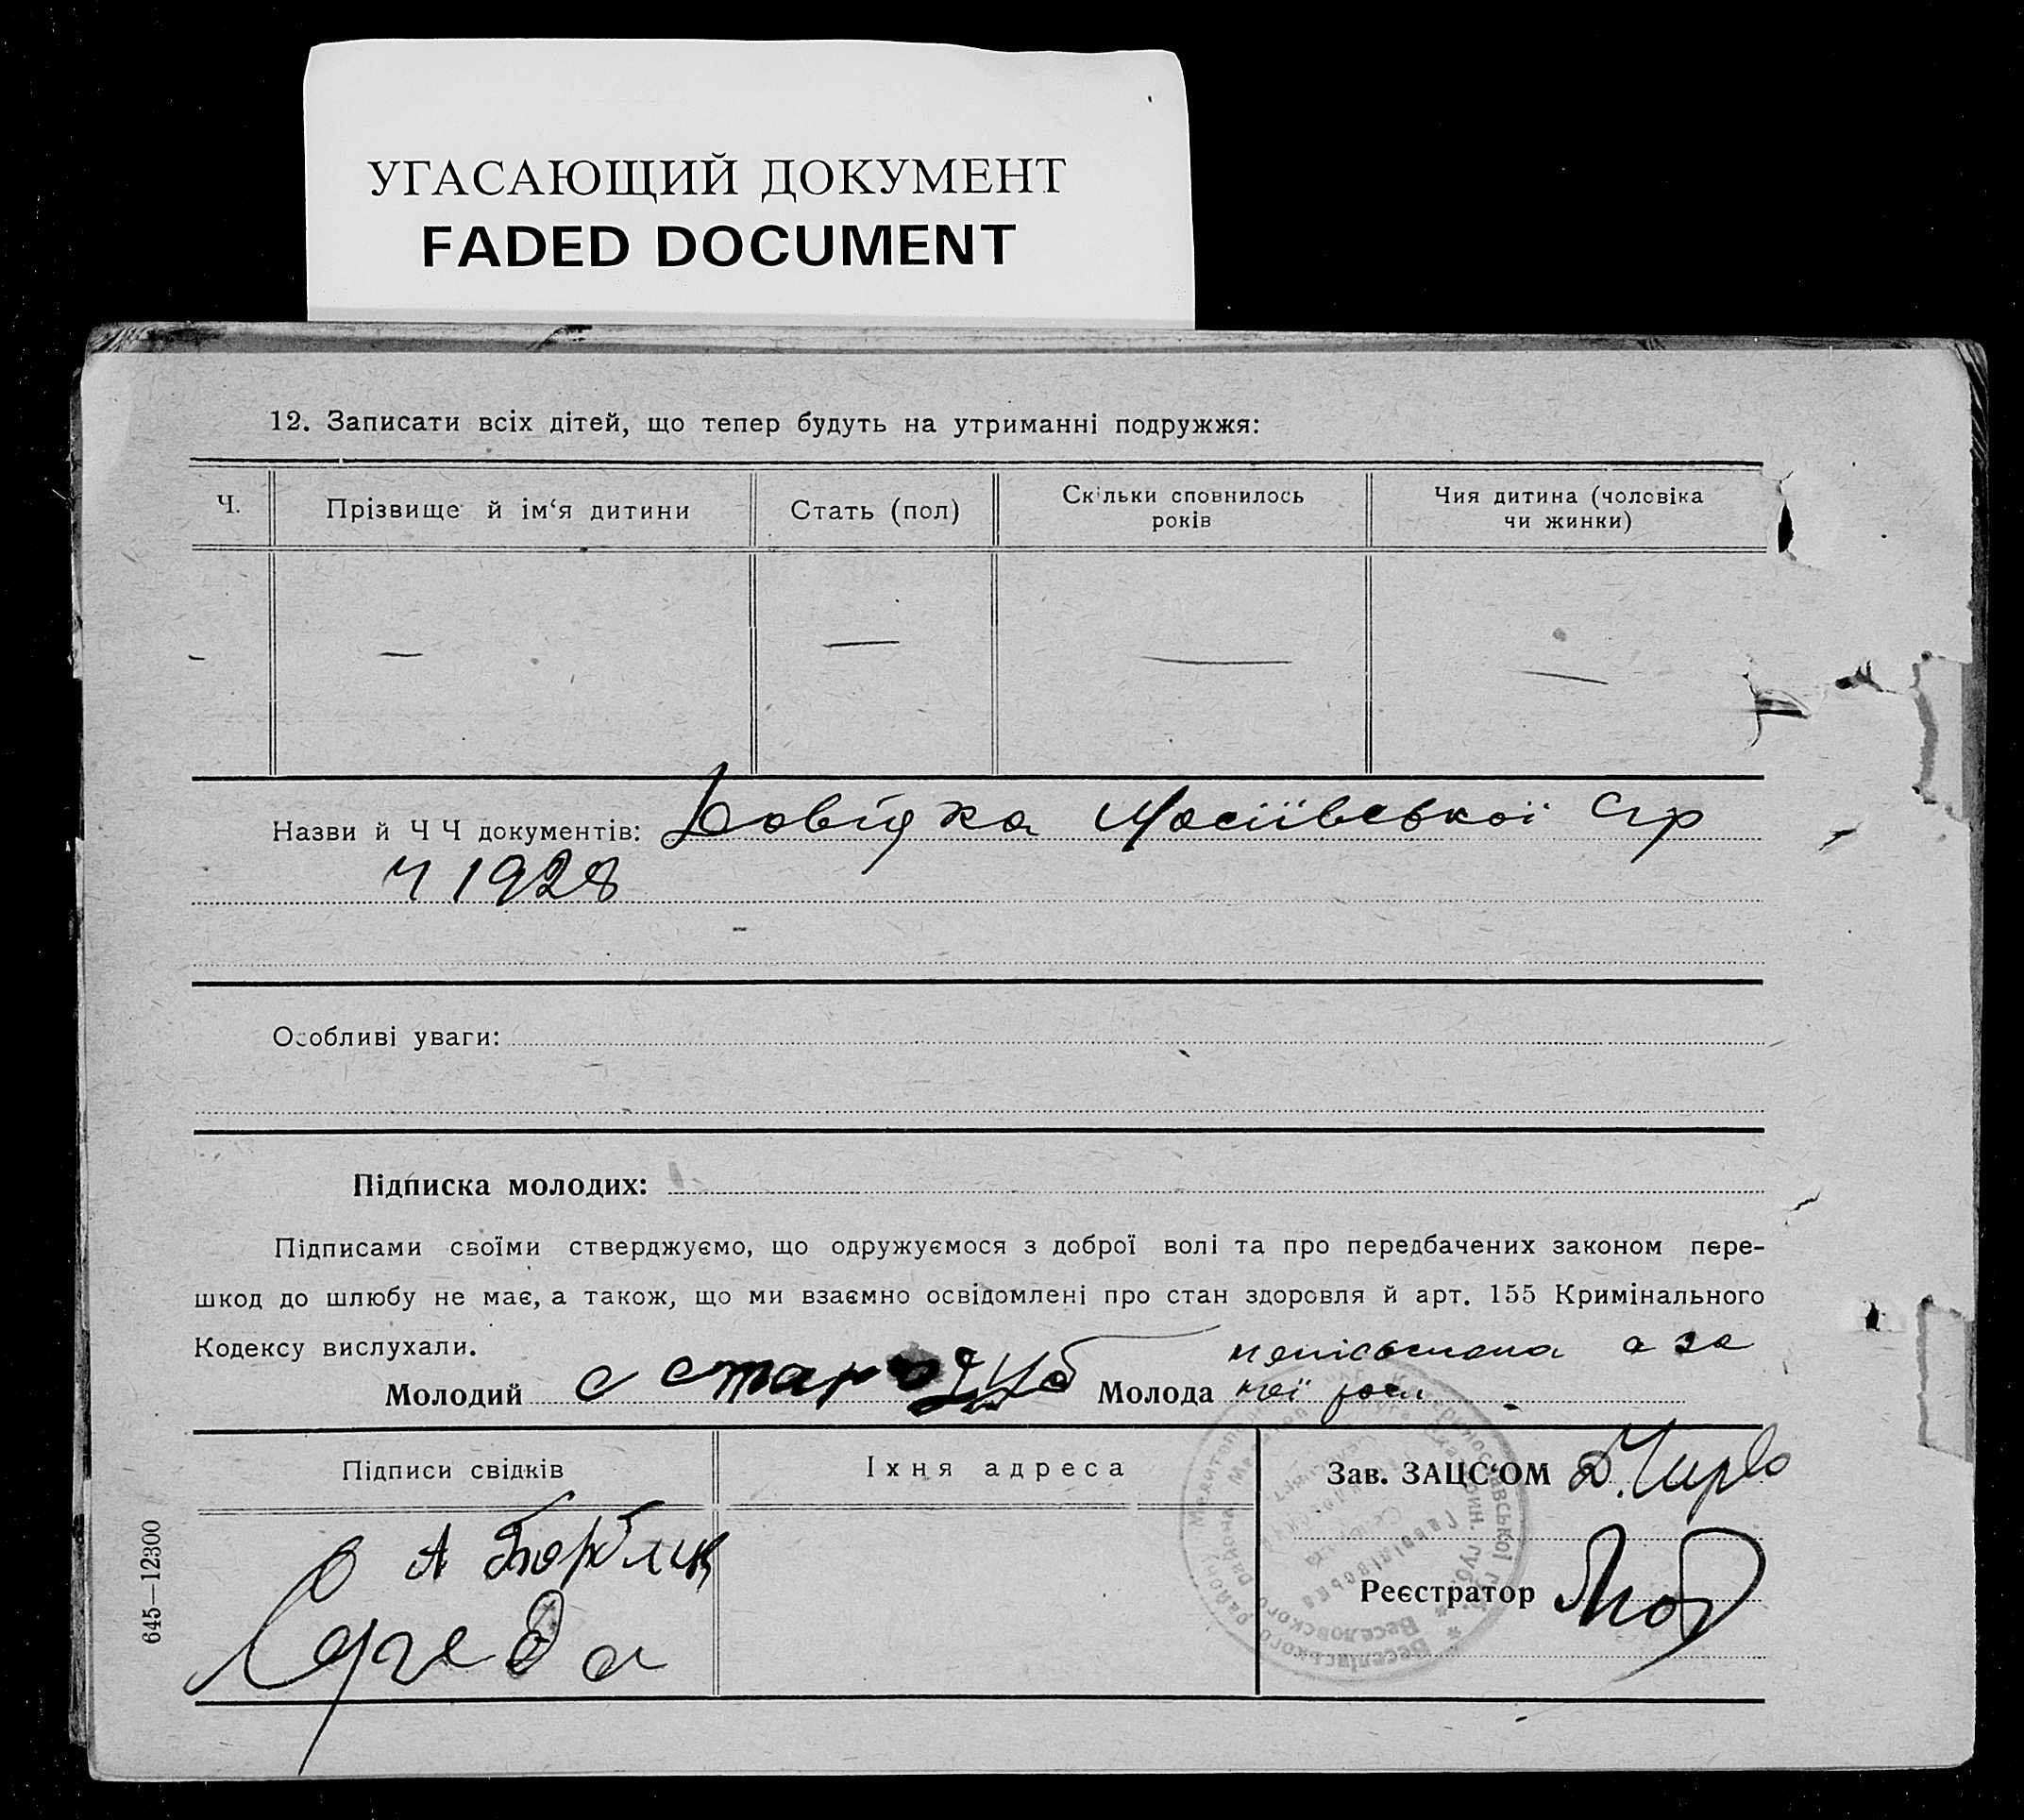 УГАСАЮЩИЙ ДОКУМЕНТ
FADED DOCUMENT
12. Записати всіх дітей, що тепер будуть на утриманні подружжя:
Ч.
Прізвище й ім‘я дитини
Стать (пол)
Скільки сповнилось
років
Чия дитина (чоловіка
чи жинки)
— — — — —
Назви й Ч Ч документів: Довідка сір
Ч 1928
Особливі уваги:
Підписка молодих:
Підписами своїми стверджуємо, що одружуємося з доброї волі та про передбачених законом пере-
шкод до шлюбу не має, а також, що ми взаємно освідомлені про стан здоровля й арт. 155 Кримінального
Кодексу вислухали.
Молодий
Молода неписьмена а за
неї росп
Підписи свідків
Їхня адреса
Зав. ЗАЦС‘ОМ
А
Середа
Реєстратор
645—12300